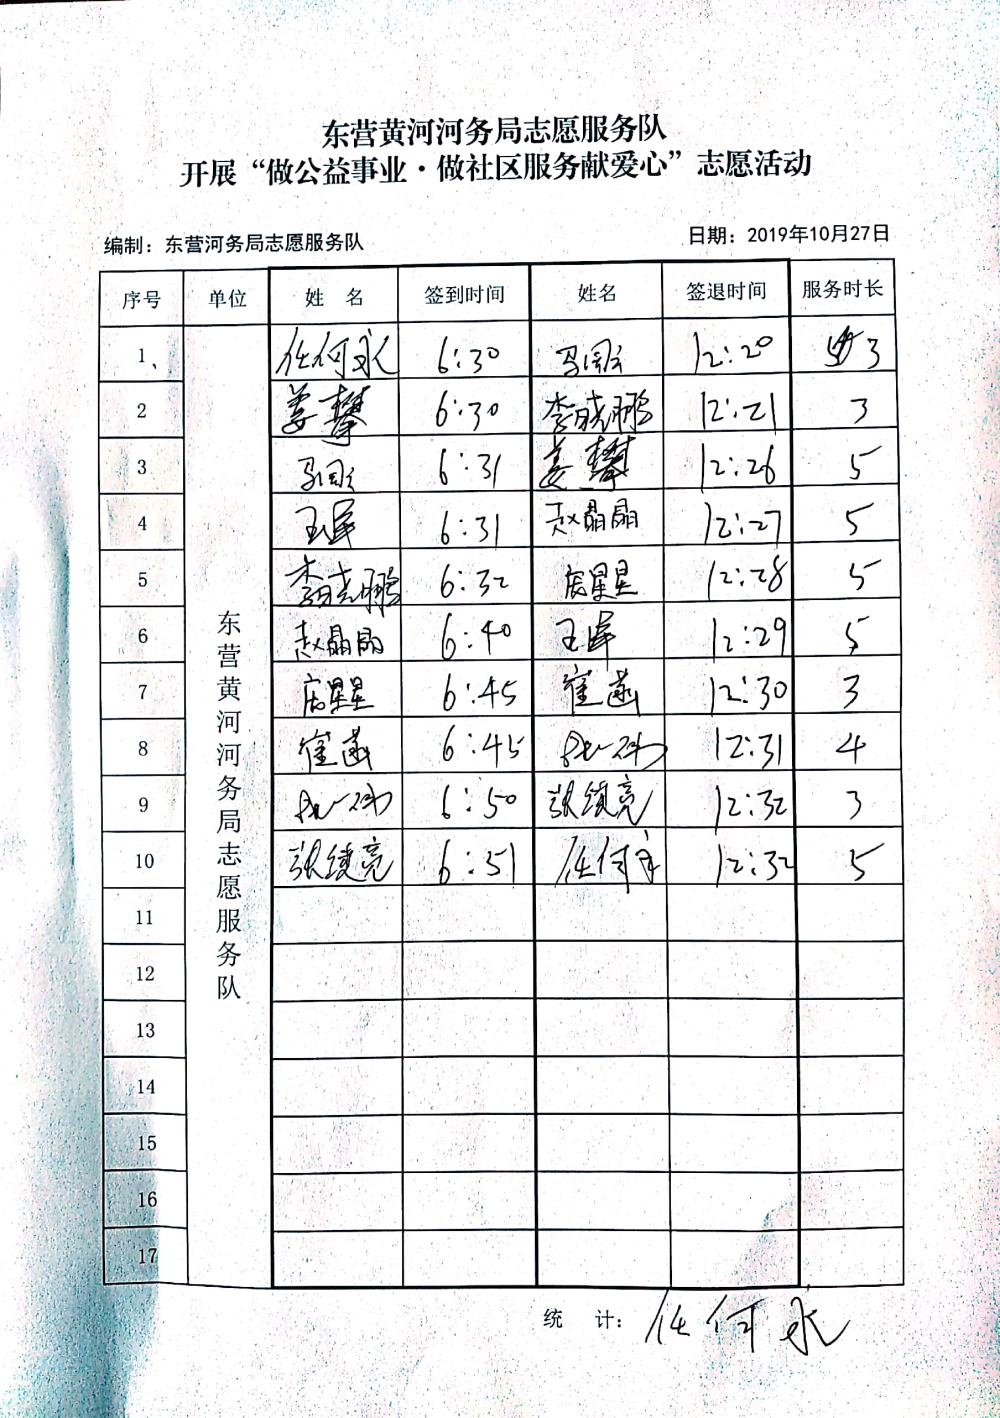 东营黄河河务局志愿服务队
开展“做公益事业·做社区服务献爱心”志愿活动
编制：东营河务局志愿服务队 日期：2019年10月27日
序号 单位 姓 名 签到时间 姓名 签退时间 服务时长
东营黄河河务局志愿服务队
1、 任何永 6:30 12:20 3
2 姜攀 6:30 李晓鹏 12:21 3
3 6:31 姜攀 12:26 5
4 6:31 赵晶晶 12:27 5
5 李晓鹏 6:32 星星 12:28 5
6 赵晶晶 6:40 12:29 5
7 星星 6:45 崔菡 12:30 3
8 崔菡 6:45 12:31 4
9 6:50 张续亮 12:32 3
10 张续亮 6:51 任何永 12:32 5
11
12
13
14
15
16
17
统 计： 任何永